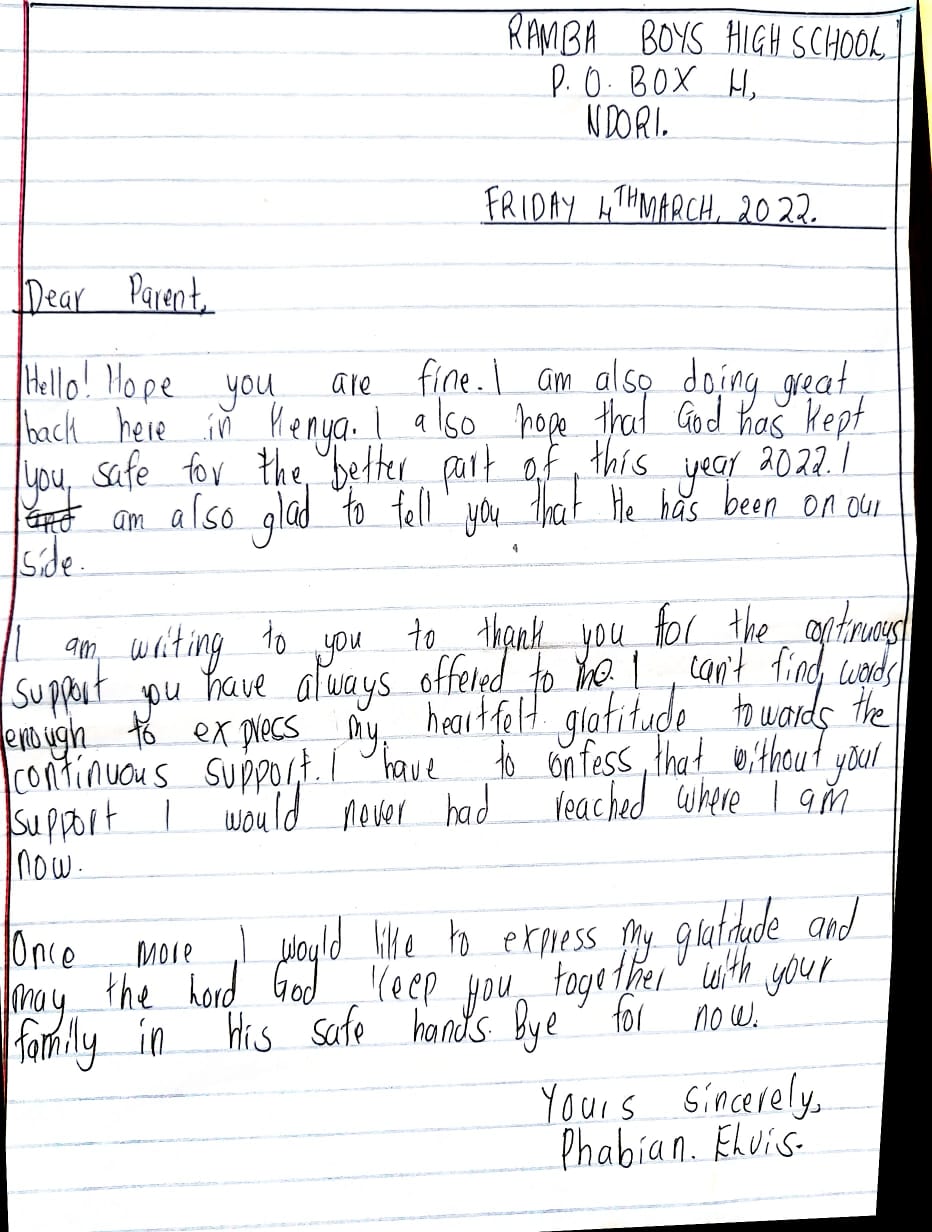 RAMBA BOYS HIGH SCHOOL,
P. O. BOX 4,
NDORI.
FRIDAY 4TH MARCH, 2022.
Dear Parent,
Hello! Hope you are fine. I am also doing great
back here in Kenya. I also hope that God has kept
you safe for the better part of this year 2022. I
and am also glad to tell you that He has been on our
side.
I am writing to you to thank you for the continuous
support you have always offered to me. I can't find words
enough to express my heartfelt gratitude towards the
continuous support. I have to confess that without your
support I would never had reached where I am
now.
Once more I would like to express my gratitude and
may the Lord God keep you together with your
family in His safe hands. Bye for now.
Yours sincerely,
Phabian. Elvis.